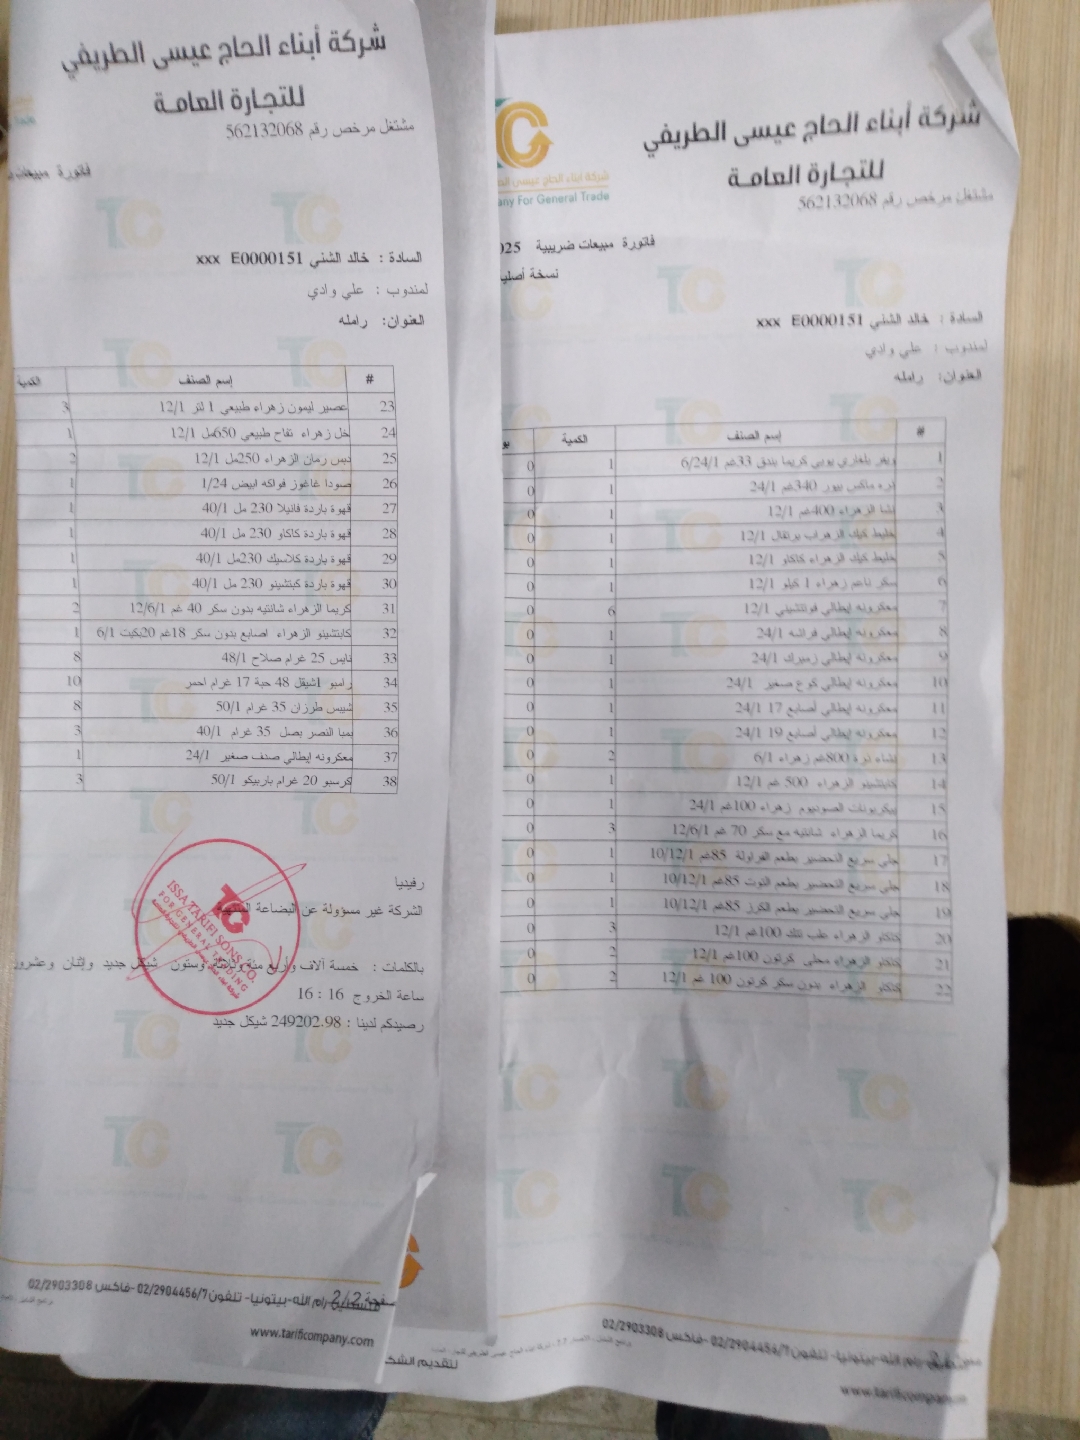 شركة أبناء الحاج عيسى الطريفي
للتجارة العامة
مشتغل مرخص رقم 562132068
شركة ابناء الحاج عيسى
ny For General Trade
فاتورة مبيعات ضريبية 025
نسخة أصلي
السادة : خالد الشني xxx E0000151
لمندوب : علي وادي
العنوان: رامله
# إسم الصنف الكمية
1 ويفر بلغاري يوبي كريما بندق 33غم 6/24/1 1 0
2 ذره ماكس بيور 340غم 24/1 1 0
3 نشا الزهراء 400غم 12/1 1 0
4 خليط كيك الزهراب برتقال 12/1 1 0
5 خليط كيك الزهراء كاكاو 12/1 1 0
6 سكر ناعم زهراء 1 كيلو 12/1 1 0
7 معكرونه إيطالي فوتتشيني 12/1 6 0
8 معكرونه إيطالي فراشه 24/1 1 0
9 معكرونه إيطالي زمبرك 24/1 1 0
10 معكرونه إيطالي كوع صغير 24/1 1 0
11 معكرونه إيطالي أصابع 17 24/1 1 0
12 معكرونه إيطالي أصابع 19 24/1 1 0
13 نشاء ذرة 800غم زهراء 6/1 2 0
14 كابتشينو الزهراء 500 غم 12/1 1 0
15 بيكربونات الصوديوم زهراء 100غم 24/1 1 0
16 كريما الزهراء شانتيه مع سكر 70 غم 12/6/1 3 0
17 جلي سريع التحضير بطعم الفراولة 85غم 10/12/1 1 0
18 جلي سريع التحضير بطعم التوت 85غم 10/12/1 1 0
19 جلي سريع التحضير بطعم الكرز 85غم 10/12/1 1 0
20 كاكاو الزهراء علب تنك 100غم 12/1 3 0
21 كاكاو الزهراء محلى كرتون 100غم 12/1 2 0
22 كاكاو الزهراء بدون سكر كرتون 100 غم 12/1 2 0
رام الله-بيتونيا- تلفون 02/2904456/7 -فاكس 02/2903308
www.tarificompany.
شركة أبناء الحاج عيسى الطريفي
للتجارة العامة
مشتغل مرخص رقم 562132068
فاتورة مبيعات
السادة : خالد الشني xxx E0000151
لمندوب : علي وادي
العنوان: رامله
# إسم الصنف الكمية
23 عصير ليمون زهراء طبيعي 1 لتر 12/1 3
24 خل زهراء تفاح طبيعي 650مل 12/1 1
25 دبس رمان الزهراء 250مل 12/1 2
26 صودا غاغوز فواكه ابيض 24/1 1
27 قهوة باردة فانيلا 230 مل 40/1 1
28 قهوة باردة كاكاو 230 مل 40/1 1
29 قهوة باردة كلاسيك 230مل 40/1 1
30 قهوة باردة كبتشينو 230 مل 40/1 1
31 كريما الزهراء شانتيه بدون سكر 40 غم 12/6/1 2
32 كابتشينو الزهراء اصابع بدون سكر 18غم 20بكيت 6/1 1
33 تايس 25 غرام صلاح 48/1 8
34 رامبو 1شيقل 48 حبة 17 غرام احمر 10
35 شيبس طرزان 35 غرام 50/1 8
36 بمبا النصر بصل 35 غرام 40/1 3
37 معكرونه إيطالي صنف صغير 24/1 1
38 كرسبو 20 غرام باربيكو 50/1 3
رفيديا
الشركة غير مسؤولة عن البضاعة
ISSA TARIFI SONS CO.
FOR GENERAL TRADING
بالكلمات : خمسة آلاف وأربع مئة وثلاثة وستون شيكل جديد وإثنان وعشرون
ساعة الخروج 16 : 16
رصيدكم لدينا : 249202.98 شيكل جديد
صفحة 2/2
رام الله-بيتونيا- تلفون 02/2904456/7 -فاكس 02/2903308
www.tarificompany.com
للتقديم الشك